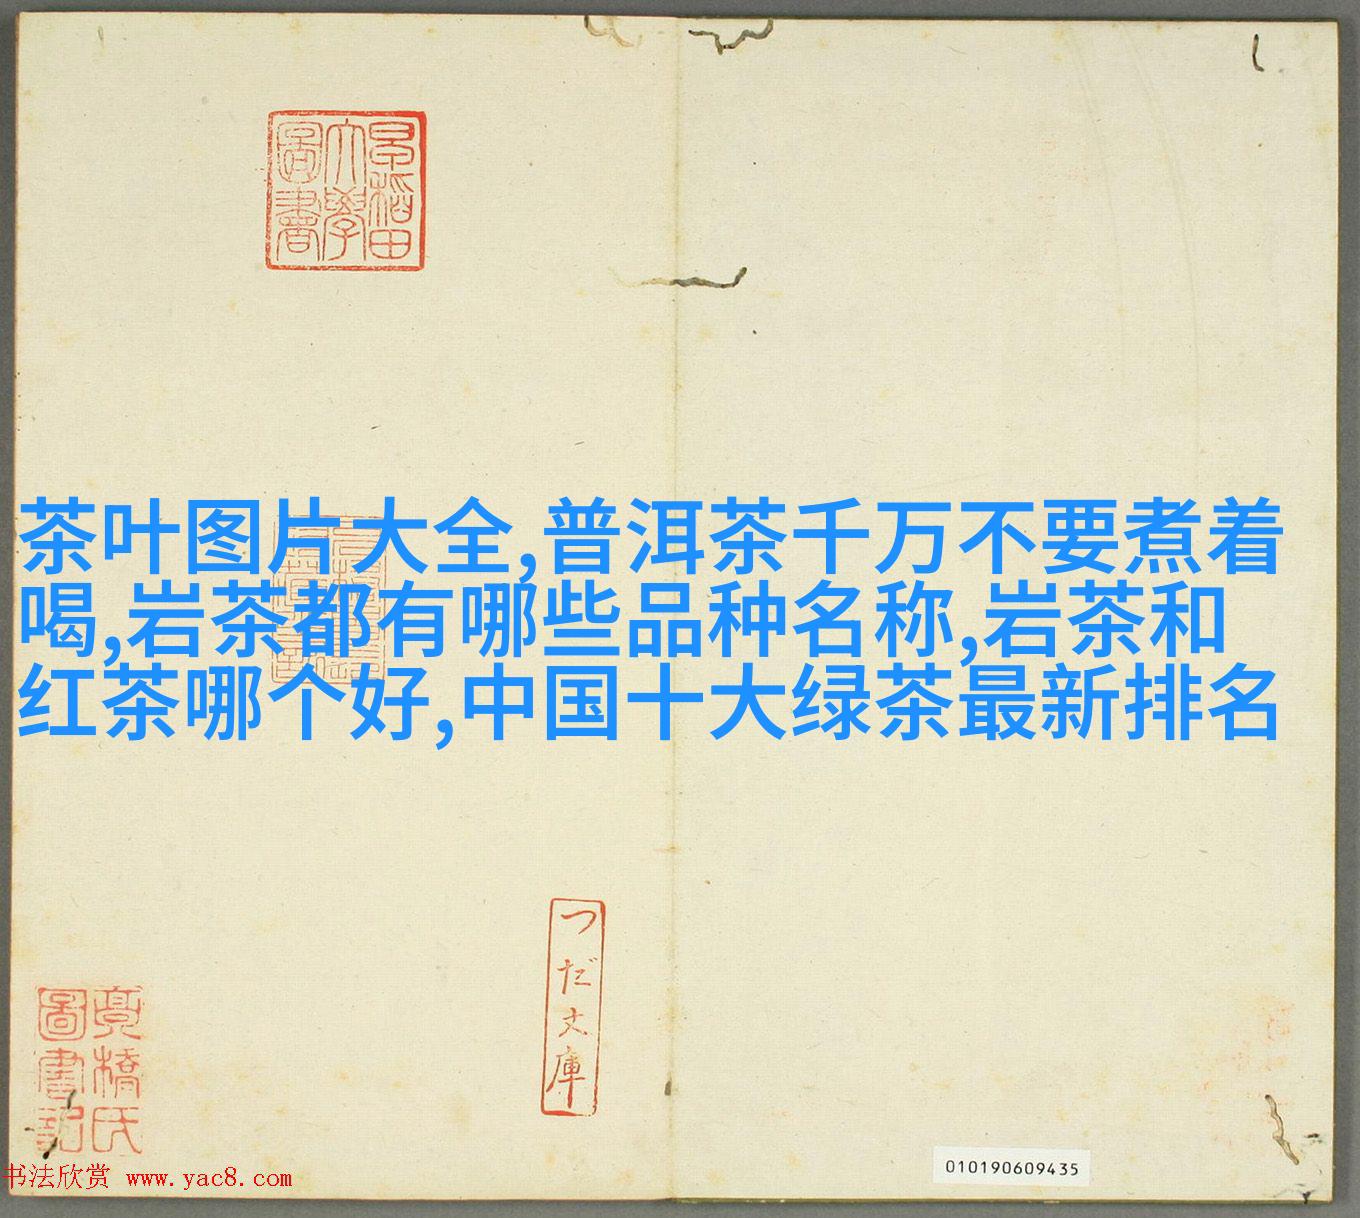 早稻田
大學
圖書
茶叶图片大全,普洱茶千万不要煮着
喝,岩茶都有哪些品种名称,岩茶和
红茶哪个好,中国十大绿茶最新排名
つだ文庫
橋氏
圖書記
书法欣赏 www.yac8.com
010190609435